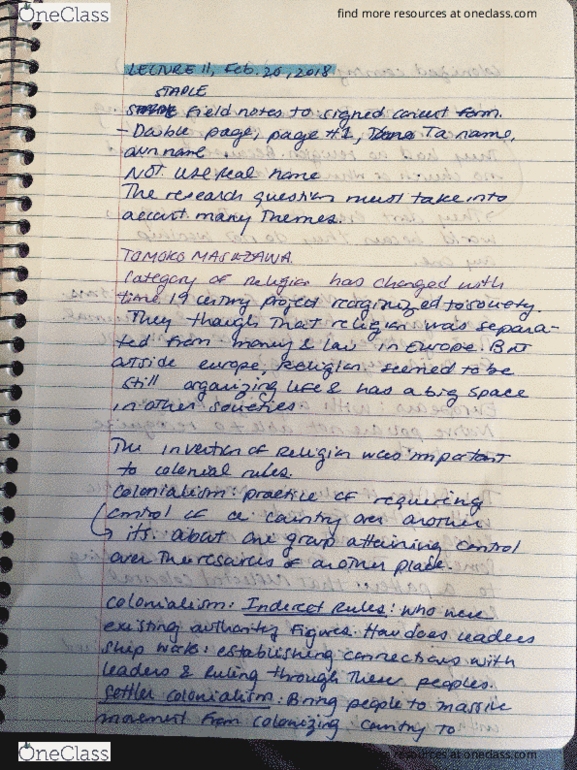 OneClass
find more resources at oneclass.com
LECTURE 11, Feb. 26, 2018
STAPLE
Field notes to signed consent form.
- Double page, page #1, Ta name,
own name
NOT use real name
The research question must take into
account many Themes.
TOMOKO MASUZAWA
Category of religion has changed with
time 19 century project recognized to society.
They though that religion was separa-
ted from money & law in Europe. But
outside europe, religion seemed to be
still organizing life & has a big space
in other societies
The invention of Religion was important
to colonial rules.
Colonialism: practice of requering
control of a country over another
↳ its about one group attaining control
over the resources of another place.
colonialism: Indirect Rules: who were
existing authority figures. How does leaders
ship work: establishing connections with
leaders & ruling through These peoples.
Settler colonialism: Bring people to massive
movement from colonizing country to
OneClass
find more resources at oneclass.com